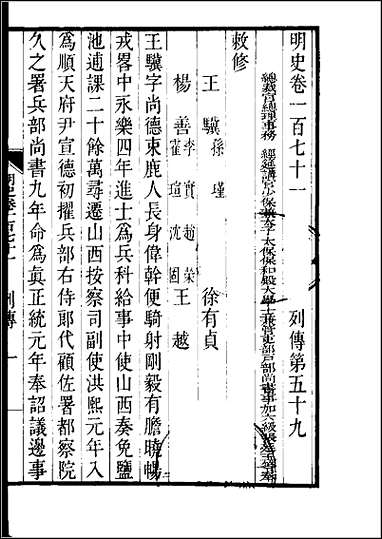 明史卷一百七十一　列傳第五十九
總裁官總理事務經筵講官少保兼太子太保保和殿大學士兼管吏部戶部尚書事加六級張廷玉等奉
敕修
王驥孫瑾　徐有貞
楊善李實　趙榮　霍瑄　沈固　王越
王驥字尚德束鹿人長身偉幹便騎射剛毅有膽曉暢
戎略中永樂四年進士為兵科給事中使山西奏免鹽
池逋課二十餘萬尋遷山西按察司副使洪熙元年入
為順天府尹宣德初擢兵部右侍郎代顧佐署都察院
久之署兵部尚書九年命為真正統元年奉詔議邊事
明史卷一百七十一　列傳　一